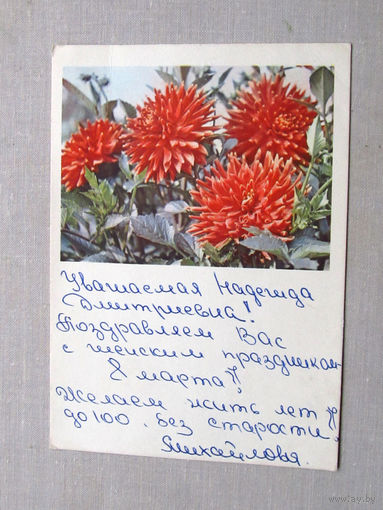 Уважаемая Надежда
Дмитриевна!
Поздравляем Вас
с женским праздником
8 марта!
Желаем жить лет
до 100, без старости.
Михайловы.
www.ay.by